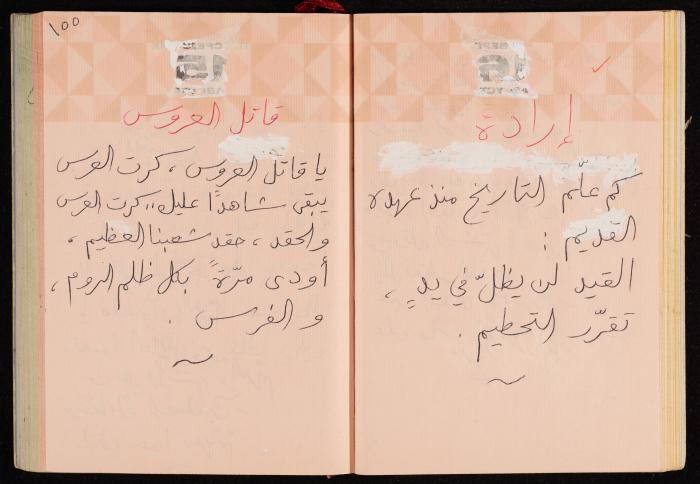 إرادة
كم علّم التاريخ منذ عهده
القديم :
القيد لن يظلّ في يدٍ ،
تقرّر التحطيم .
100
قاتل العروس
يا قاتل العروس ، كرت العرس
يبقى شاهدًا عليك ،، كرت العرس
والحقد ، حقد شعبنا العظيم ،
أودى مرّةً بكل ظلم الروم ،
و الفرس .